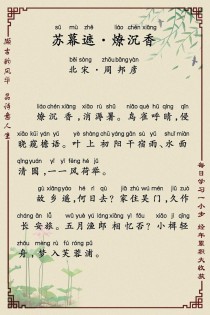 sū mù zhē liáo chén xiāng
苏幕遮·燎沉香
běi sòng zhōu bāng yàn
北宋·周邦彦
liáo chén xiāng xiāo rù shǔ niǎo què hū qíng qīn
燎沉香,消溽暑。鸟雀呼晴,侵
xiǎo kuī yán yǔ yè shàng chū yáng gān sù yǔ shuǐ miàn
晓窥檐语。叶上初阳干宿雨、水面
qīng yuán yī yī fēng hé jǔ
清圆,一一风荷举。
gù xiāng yáo hé rì qù jiā zhù wú mén jiǔ zuò
故乡遥,何日去?家住吴门,久作
cháng ān lǚ wǔ yuè yú láng xiāng yì fǒu xiǎo jí qīng
长安旅。五月渔郎相忆否?小楫轻
zhōu mèng rù fú róng pǔ
舟,梦入芙蓉浦。
颂古韵风华 品诗意人生
每日学习一小步 经年累积大收获